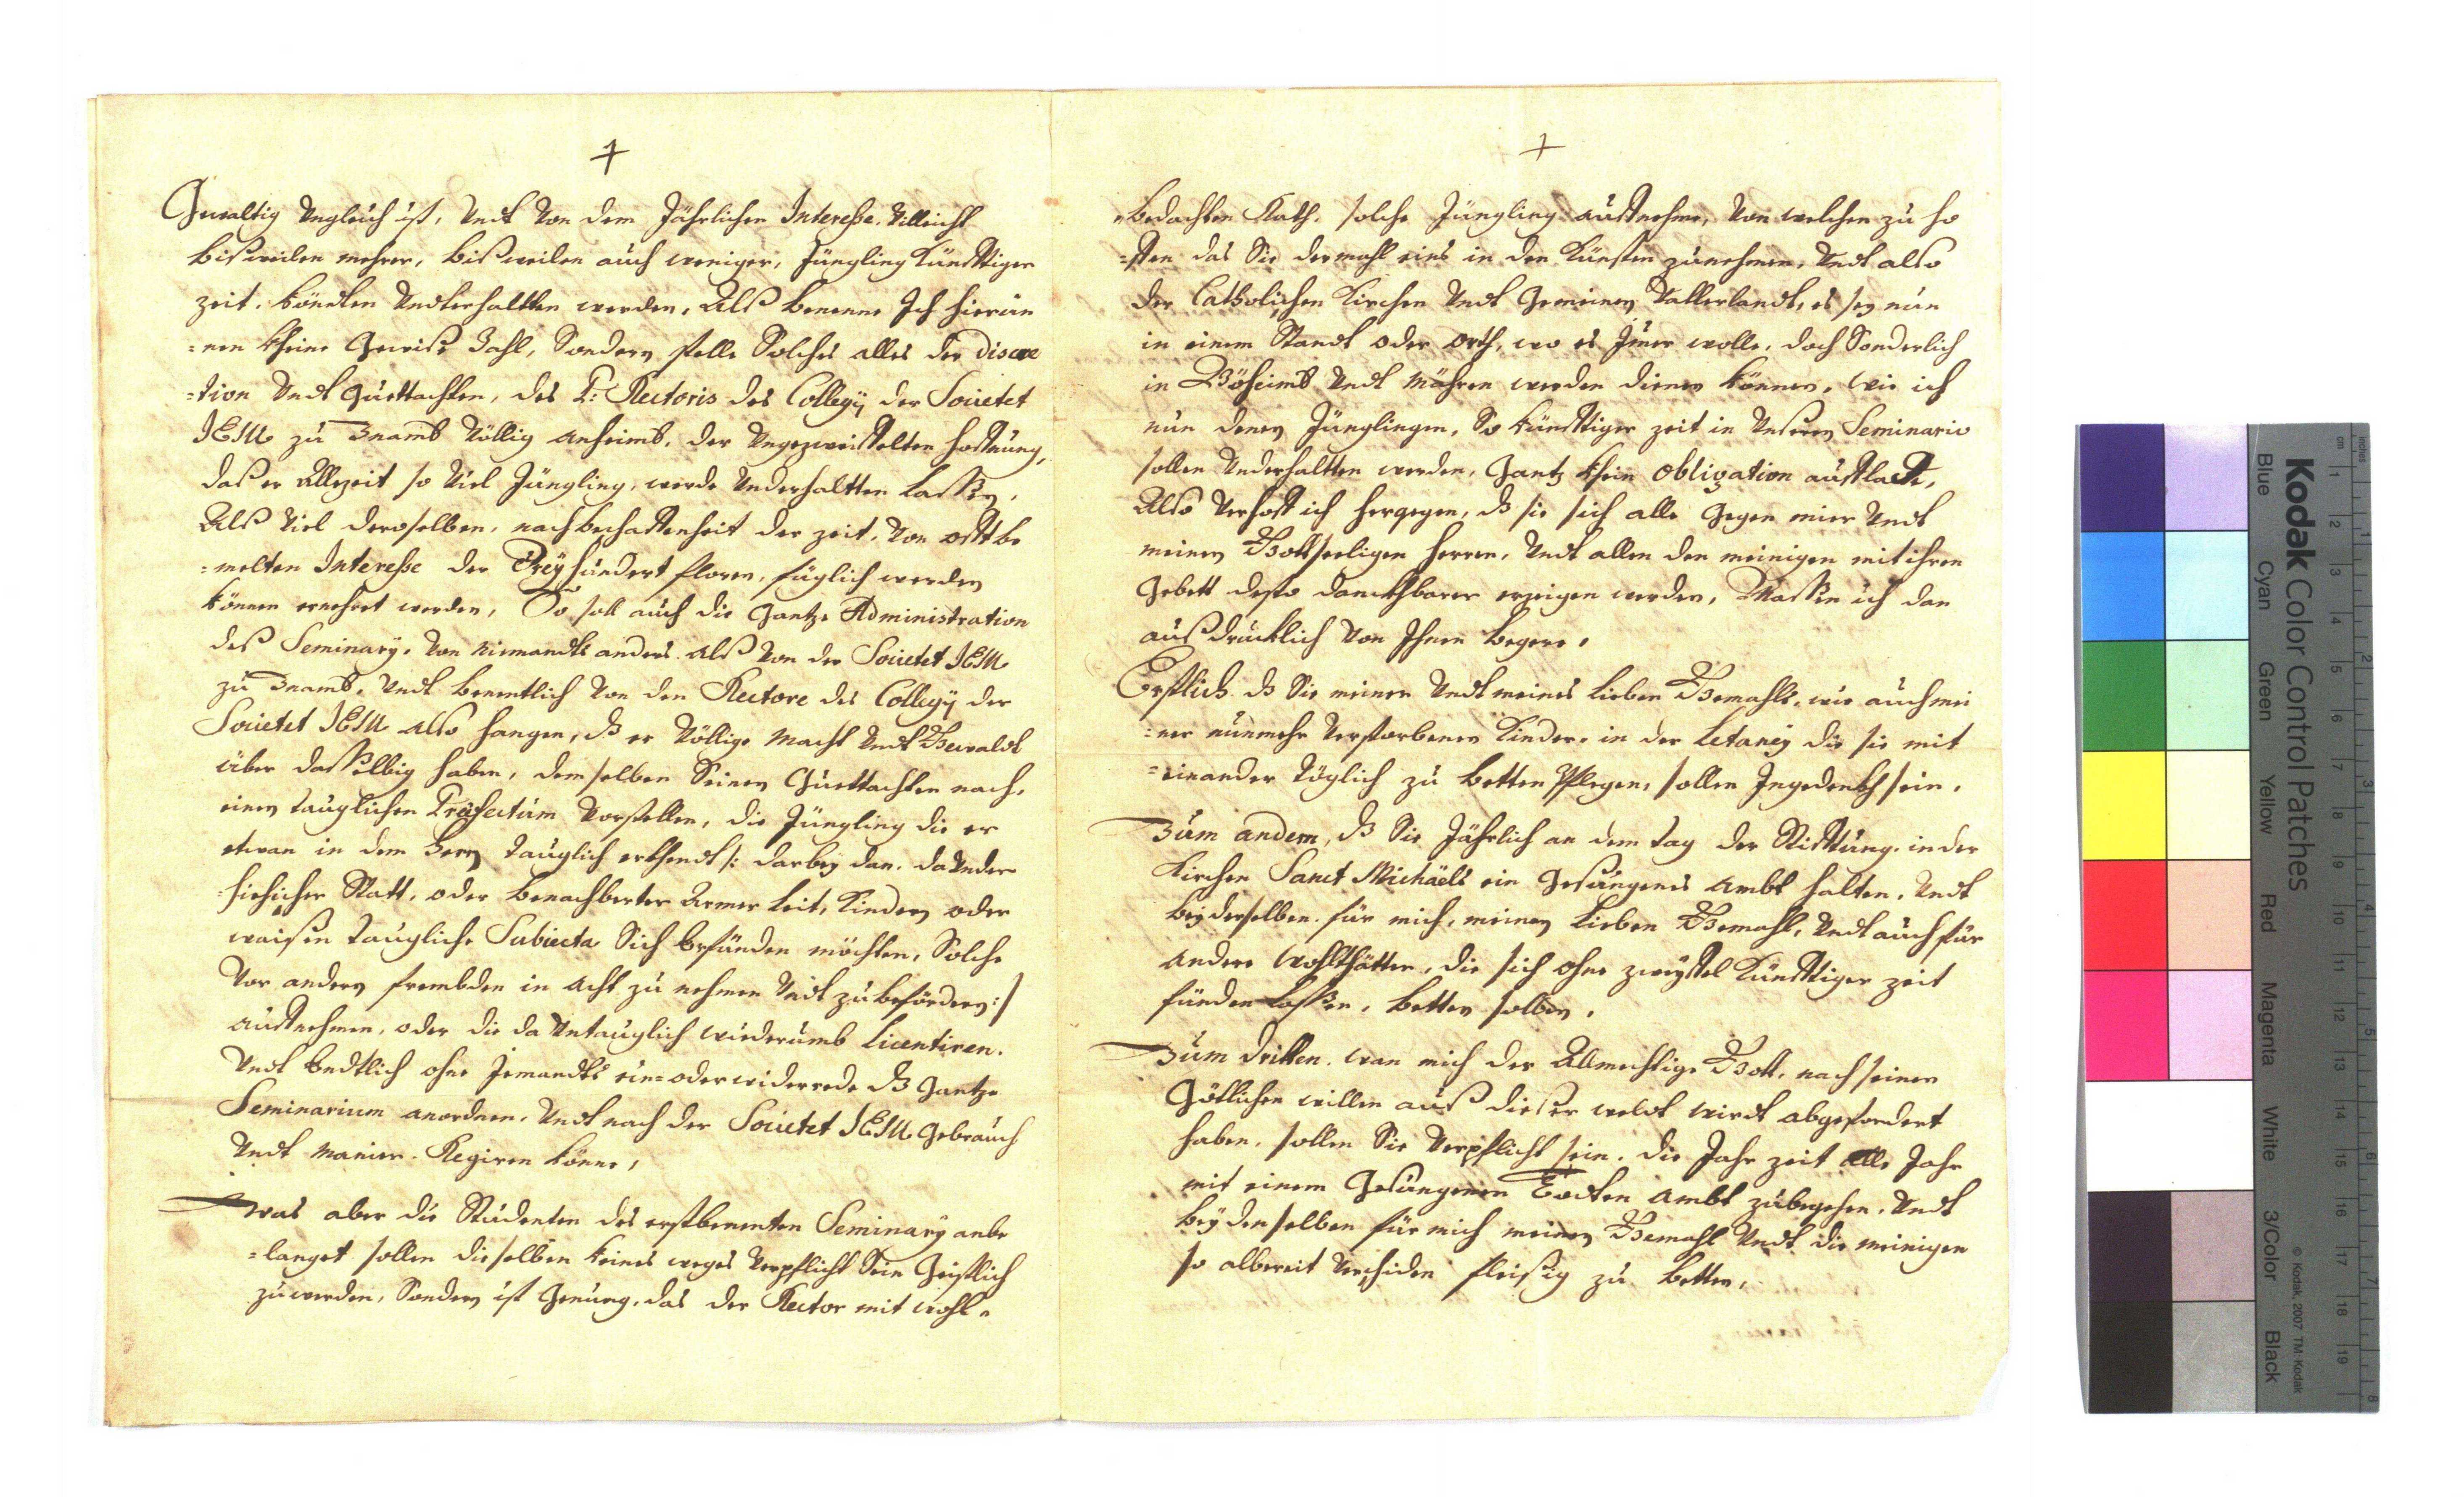 Gwaltig Ungleich ist, Undt Von dem Jährlichen Interesse. Villeicht
bißweilen mehrer, bißweilen auch weniger, Jüngling Künfftiger
zeit, köndten Undterhaltten werden, Alß benenne Ich hierin
=nen kheine Gewiße Zahl, Sondern stelle Solches alles der discre
=tion Undt Guettachten, des P: Rectoris des Collegij der Societet
JESU zu Znamb Völlig anheimb, der Ungezweiffelten hoffnung,
daß er Allezeit so Viel Jüngling, werde Underhaltten laßen,
Alß Viel deroselben, nach beschaffenheit der zeit, Von offt be
=melten Interesse der Dreyhundert floren, füglich werden
können ernehret werden, So soll auch die Gantze Administration
deß Seminarÿ, Von Niemandts anders. Alß Von der Societet JESU
zu Znamb, Undt benentlich Von den Rectore des Collegÿ der
Societet JESU also hangen, dß er Völlige Macht Undt Gewaldt
über dasselbig haben, demselben Seinen Guettachten nach,
einen tauglichen Præfectum Vorstellen, die Jüngling die er
etwan in dem Tauglich erkhendt /: darbey dan, da Under
hiesicher Statt, oder benachberter Armer leit, Kindern oder
waißen taugliche Subiecta Sich befünden möchten, Solche
Vor andern frembden in acht zu nehmen Undt zu befördern :/
auffnehmen, oder die da Untauglich wiederumb Licentiren.
Undt Endtlich ohne Jemandts ein= oder widerrede dß Gantze
Seminarium anordnen, Undt nach der Societet JESU Gebrauch
Undt Manier Regiren könne,
Was aber die Studenten des erstbenenten Seminarÿ anbe
=langet sollen dieselben keines weges Verpflicht Sein Geistlich
zu werden, Sondern ist Genung, das der Rector mit wohl=
=bedachten Rath, solche Jüngling auffnehme, Von welchen zu ho
=ffen das Sie dermahl eins in den Künsten zunehmen, Undt also
der Catholischen Kirchen Undt Gemeinen Vatterlandt, es sey nun
in einem Standt oder Orth, wo es Jmer wolle, doch Sonderlich
in Böheimb Undt Mähren werden dienen können, wie ich
nun denen Jünglingen, So künfftiger zeit in Unseren Seminario
sollen Underhaltten werden, Gantz khein Obligation aufflade,
Also Verhoff ich hergegen, dß sie sich alle Gegen mier Undt
meinen Gottseeligen herren, Undt allen den meinigen mit ihren
Gebett desto danckhbarer erzeigen werden, Maßen ich dan
außdrücklich Von Ihnen begere,
Erstlich dß Sie meiner Undt meines lieben Gemahls, wie auch mei
=ner nunmehr Verstorbenen Kinder, in der Letaneÿ die sie mit
=einander Täglich zu betten Pflegen, sollen Ingedenkh sein,
Zum andern, dß Sie Jährlich an dem tag der Stifftung in der
Kirchen Sanct Michäels ein Gesungenes Ambt halten, Undt
bey derselben für mich, meinen lieben Gemahl, Undt auch für
andere Wohlthätter, die sich ohne zweyffel Künfftiger zeit
fünden laßen, betten sollen,
Zum dritten. wan mich der Allmechtige Gott, nach seinen
Götlichen willen auß dieser weldt wirdt abgefordert
haben, sollen Sie Verpflicht sein, die Jahr zeit Alle Jahr
mit einem Gesungenen Todten Ambt zu begehen, Undt
bey denselben für mich meinen Gemahl Undt die meinigen
so albereit Verschiden fleißig zu betten,
Kodak Color Control Patches
Blue Cyan Green Yellow Red Magenta White 3/Color Black
© Kodak, 2007 TM: Kodak
inches 1 2 3 4 5 6 7 8
cm 1 2 3 4 5 6 7 8 9 10 11 12 13 14 15 16 17 18 19